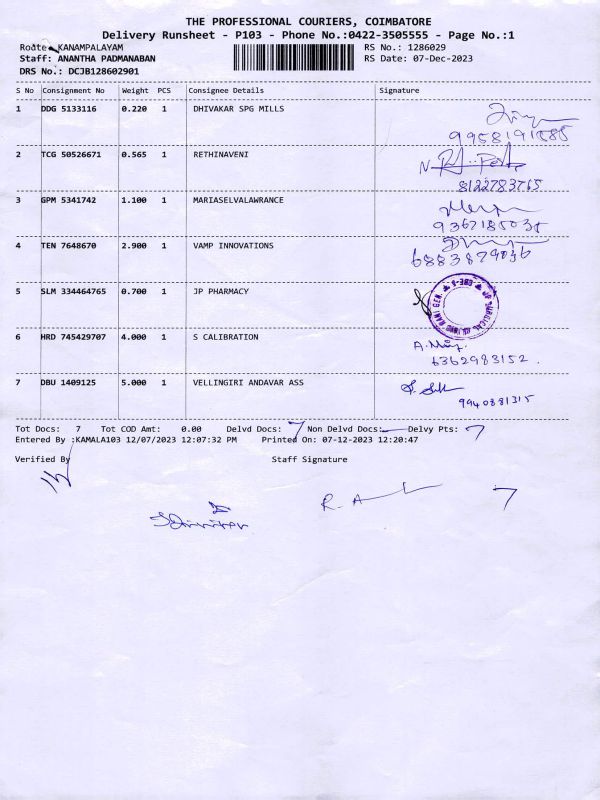 THE PROFESSIONAL COURIERS, COIMBATORE
Delivery Runsheet - P103 - Phone No.:0422-3505555 - Page No.:1
Route: KANAMPALAYAM RS No.: 1286029
Staff: ANANTHA PADMANABAN RS Date: 07-Dec-2023
DRS No.: DCJB128602901
S No Consignment No Weight PCS Consignee Details Signature
1 DDG 5133116 0.220 1 DHIVAKAR SPG MILLS
2 TCG 50526671 0.565 1 RETHINAVENI
8122783765
3 GPM 5341742 1.100 1 MARIASELVALAWRANCE
4 TEN 7648670 2.900 1 VAMP INNOVATIONS
5 SLM 334464765 0.700 1 JP PHARMACY
6 HRD 745429707 4.000 1 S CALIBRATION
6362983152.
7 DBU 1409125 5.000 1 VELLINGIRI ANDAVAR ASS
9940881315
Tot Docs: 7 Tot COD Amt: 0.00 Delvd Docs: 7 Non Delvd Docs: Delvy Pts: 7
Entered By :KAMALA103 12/07/2023 12:07:32 PM Printed On: 07-12-2023 12:20:47
Verified By Staff Signature
7